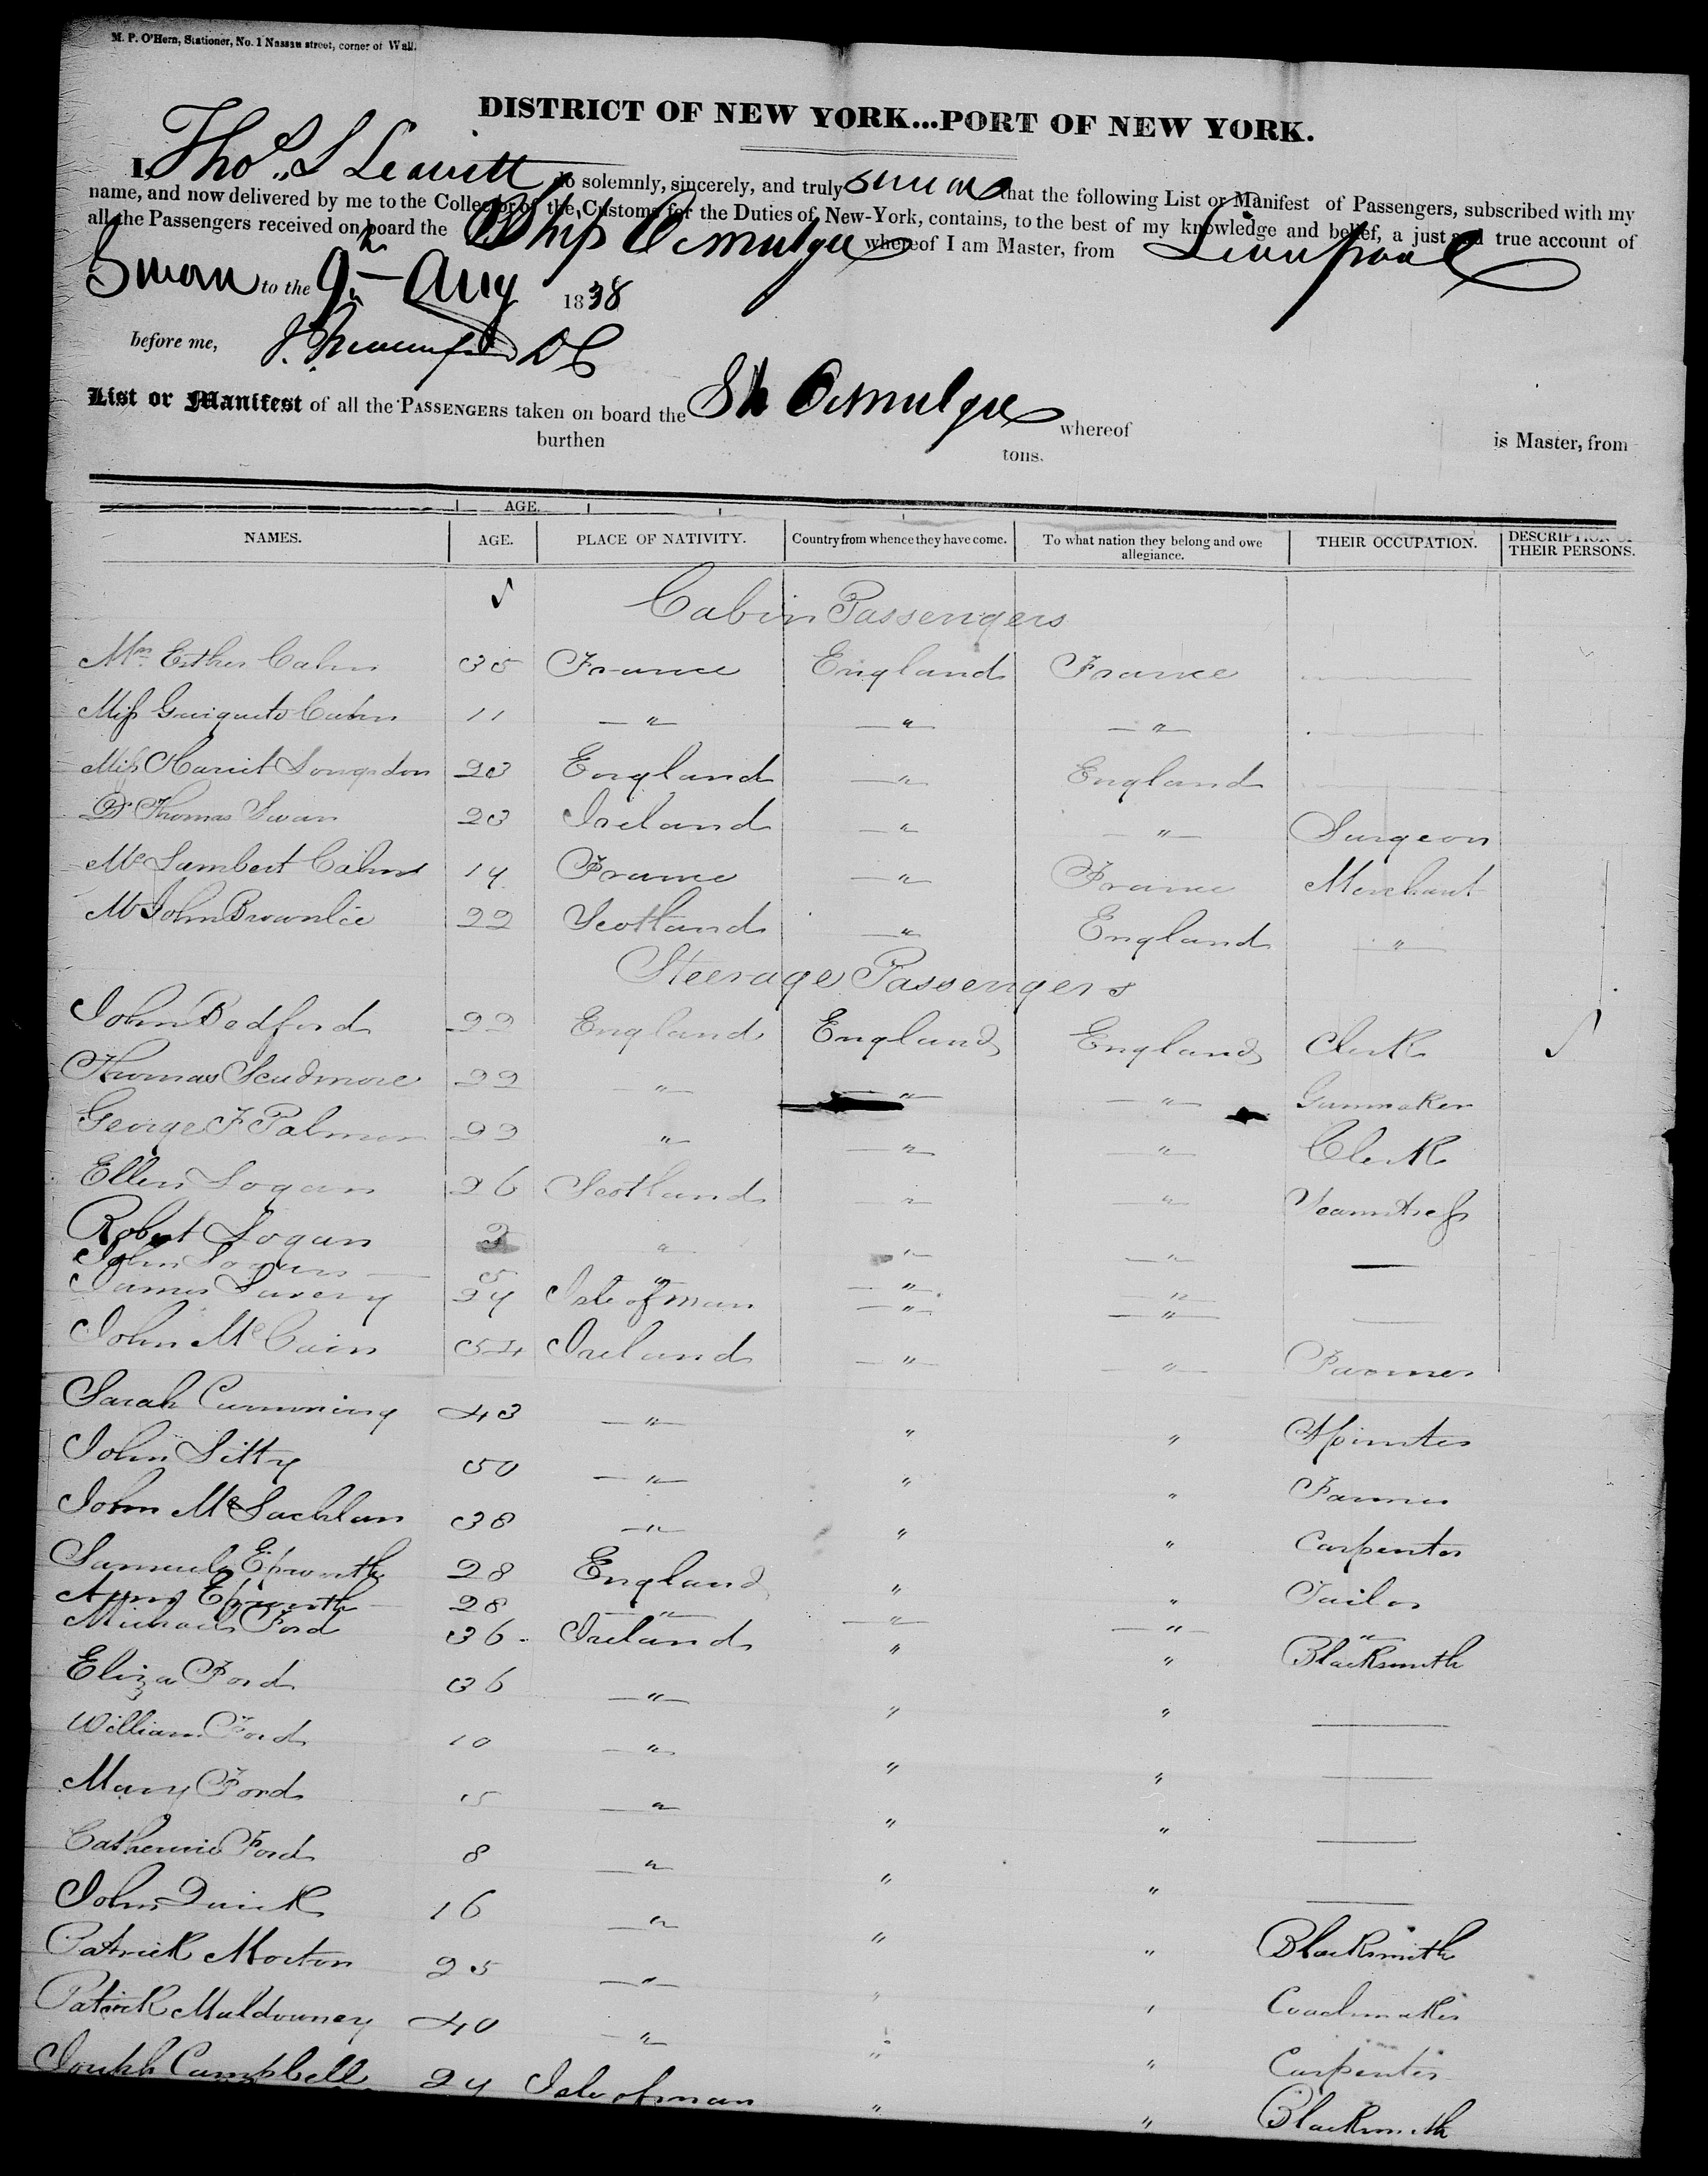 M. P. O'Hern, Stationer, No. 1 Nassau street, corner of Wall.
DISTRICT OF NEW YORK...PORT OF NEW YORK.
I, Thos. S Leavitt do solemnly, sincerely, and truly swear that the following List or Manifest of Passengers, subscribed with my
name, and now delivered by me to the Collector of the Customs for the Duties of New-York, contains, to the best of my knowledge and belief, a just and true account of
all the Passengers received on board the Ship Ocmulgee whereof I am Master, from Liverpool
Sworn to the 9th Aug 1838
before me, D C
List or Manifest of all the PASSENGERS taken on board the Sh Ocmulgee whereof is Master, from
burthen tons.
AGE.
NAMES. AGE. PLACE OF NATIVITY. Country from whence they have come. To what nation they belong and owe allegiance. THEIR OCCUPATION. DESCRIPTION OF THEIR PERSONS.
Cabin Passengers
Mrs. Esther Cahn 35 France England France
Miss Cahn 11 " " "
Miss Harriet Longsdon 23 England " England
Dr Thomas Swan 23 Ireland " " Surgeon
Mr Lambert Cahn 19 France " France Merchant
Mr John Brownlie 22 Scotland " England "
Steerage Passengers
John Bedford 22 England England England Clerk
Thomas Scudmore 22 " " " Gunmaker
George F Palmer 22 " " " Clerk
Ellen Logan 26 Scotland " " Seamstress
Robert Logan 3 " " "
John Logan 5 " " "
James Savery 24 Isle of man " "
John McCain 54 Ireland " " Farmer
Sarah Cumming 43 " " " Spinster
John Litty 50 " " " Farmer
John McLachlan 38 " " " Carpenter
Samuel Epworth 28 England " " Tailor
Ann Epworth 28 " " " "
Michael Ford 36 Ireland " " Blacksmith
Eliza Ford 36 " " "
William Ford 10 " " "
Mary Ford 15 " " "
Catherine Ford 8 " " "
John Quirk 16 " " " Blacksmith
Patrick Morton 25 " " " Coachmaker
Patrick Muldowney 40 " " " Carpenter
Joseph Campbell 24 Isle of man " " Blacksmith